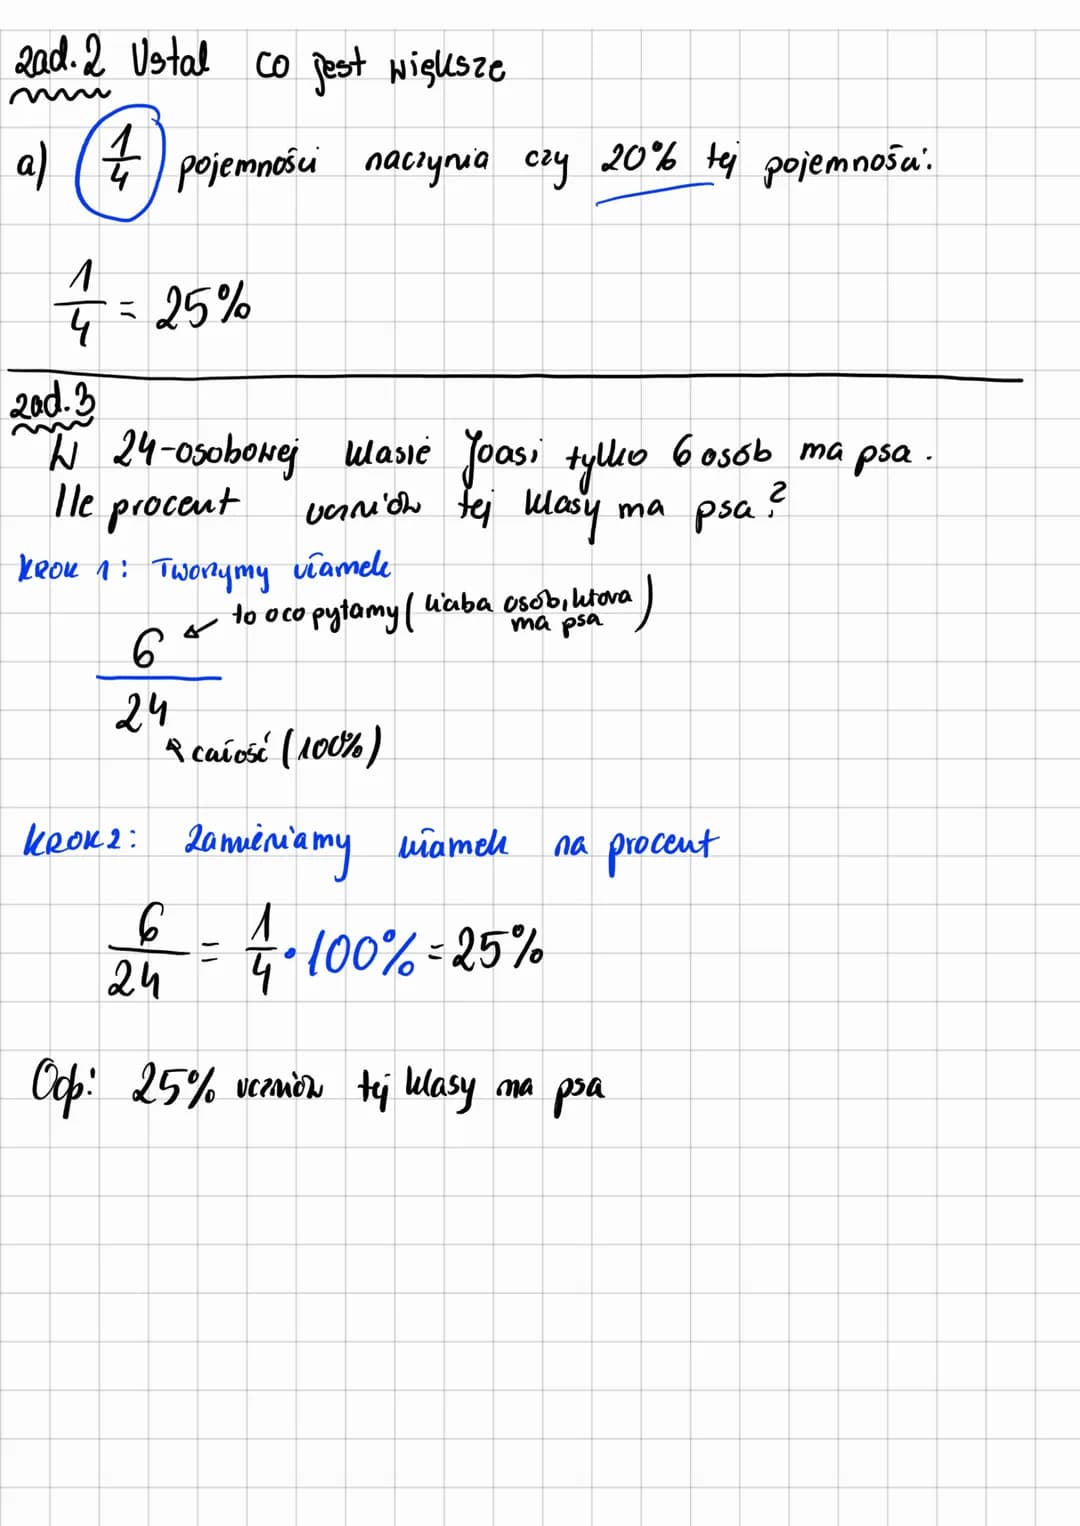 zad.2 Ustal co jest większe
a) 1/4 pojemności naczynia czy 20% tej pojemności.
1/4 = 25%
zad.3
W 24-osobowej klasie Joasi tylko 6 osób ma psa.
Ile procent uczniów tej klasy ma psa?
KROK 1: Tworzymy ułamek
to o co pytamy (liczba osób, która ma psa)
6
24
całość (100%)
KROK 2: Zamieniamy ułamek na procent
6/24 = 1/4 · 100% = 25%
Odp: 25% uczniów tej klasy ma psa